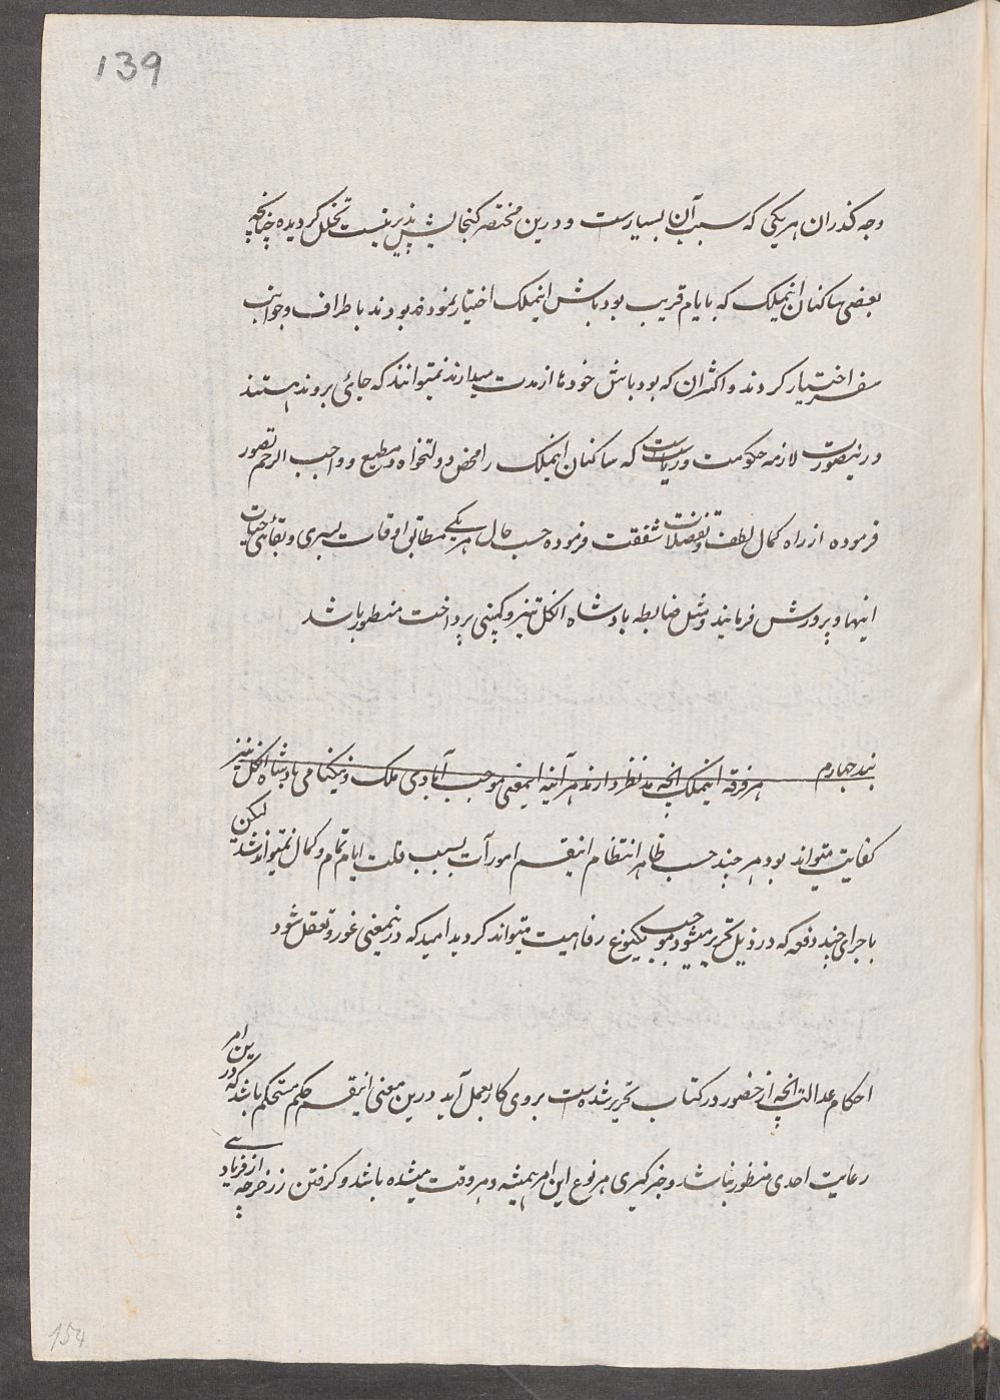 139
وجه گذران هر یکی که سبب آن بسیارست و درین مختصر گنجایش پذیر نیست تخلل گردیده چنانچه
بعضی ساکنان اینملک که بایام قریب بود باش اینملک اختیار نموده بودند باطراف و جوانب
سفر اختیار کردند و اکثران که بود باش خودها از مدت میدارند نمیتوانند که جائی بروند هستند
درینصورت لازمه حکومت و ریاست که ساکنان اینملک را محض دولتخواه و مطیع و واجب الرحم تصور
فرموده از راه کمال لطف و تفضلات شفقت فرموده حسب حال هر یکی مطابق اوقات بسری و بقائی حیات
اینها و پرورش فرمایند و مثل ضابطه بادشاه انگلتیز و کمپنی پرداخت منظور باشد
بند چهارم هر فرقه اینملک انچه مد نظر دارند هر آئینه اینمعنی موجب آبادی ملک و نیکنامی بادشاه انگلتیز
کفایت میتواند بود هر چند حسب ظاهر انتظام اینقسم امورات بسبب قلت ایام تمام و کمال نمیتواند شد لیکن
باجرای چند دفعه که در ذیل تحریر میشود موجب یکنوع رفاهیت میتواند گردید امید که درینمعنی غور و تعقل شود
احکام عدالت انچه از حضور در کتاب تحریر شده است بروی کار بعمل آید درین معنی اینقسم حکم مستحکم باشد که درین امر
رعایت احدی منظور نباشد و خبرگیری هر نوع این امر همیشه و هر وقت میشده باشد و گرفتن زر خرچه از فریادی
154